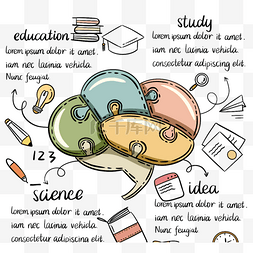 education
lorem ipsum dolor it amet.
iam nec lacinia vehida.
Nunc feugiat
study
lorem ipsum dolor it amet.
iam nec lacinia vehida.
123
science
lorem ipsum dolor it amet.
iam nec lacinia vehida.
Nunc feugiat
idea
lorem ipsum dolor it amet.
iam nec lacinia vehida.